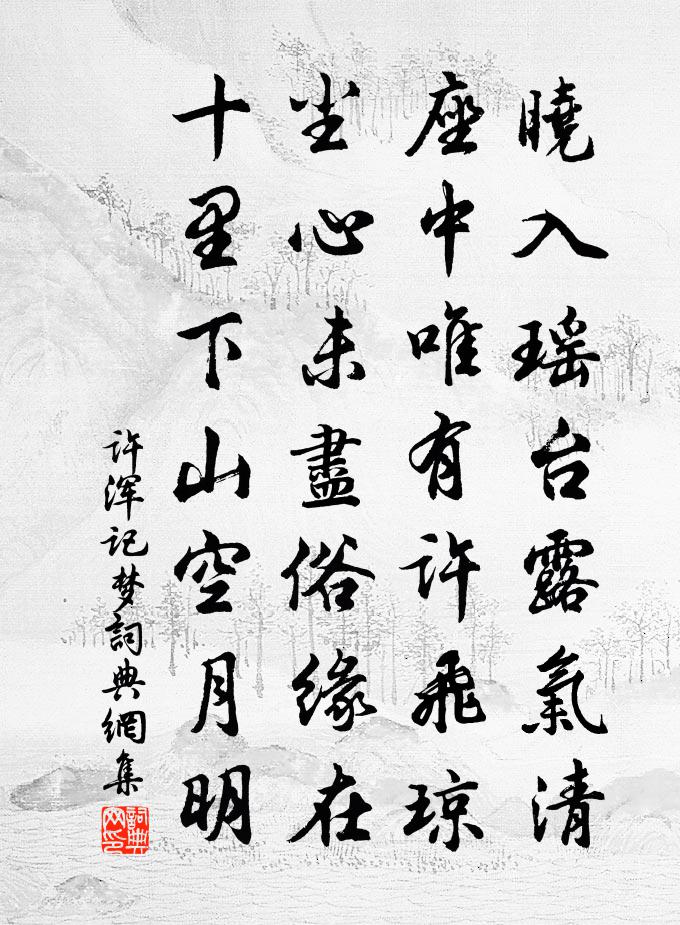 曉入瑶台露氣清
座中唯有许飛琼
尘心未盡俗缘在
十里下山空月明
许浑记梦詞典網集
詞典网印